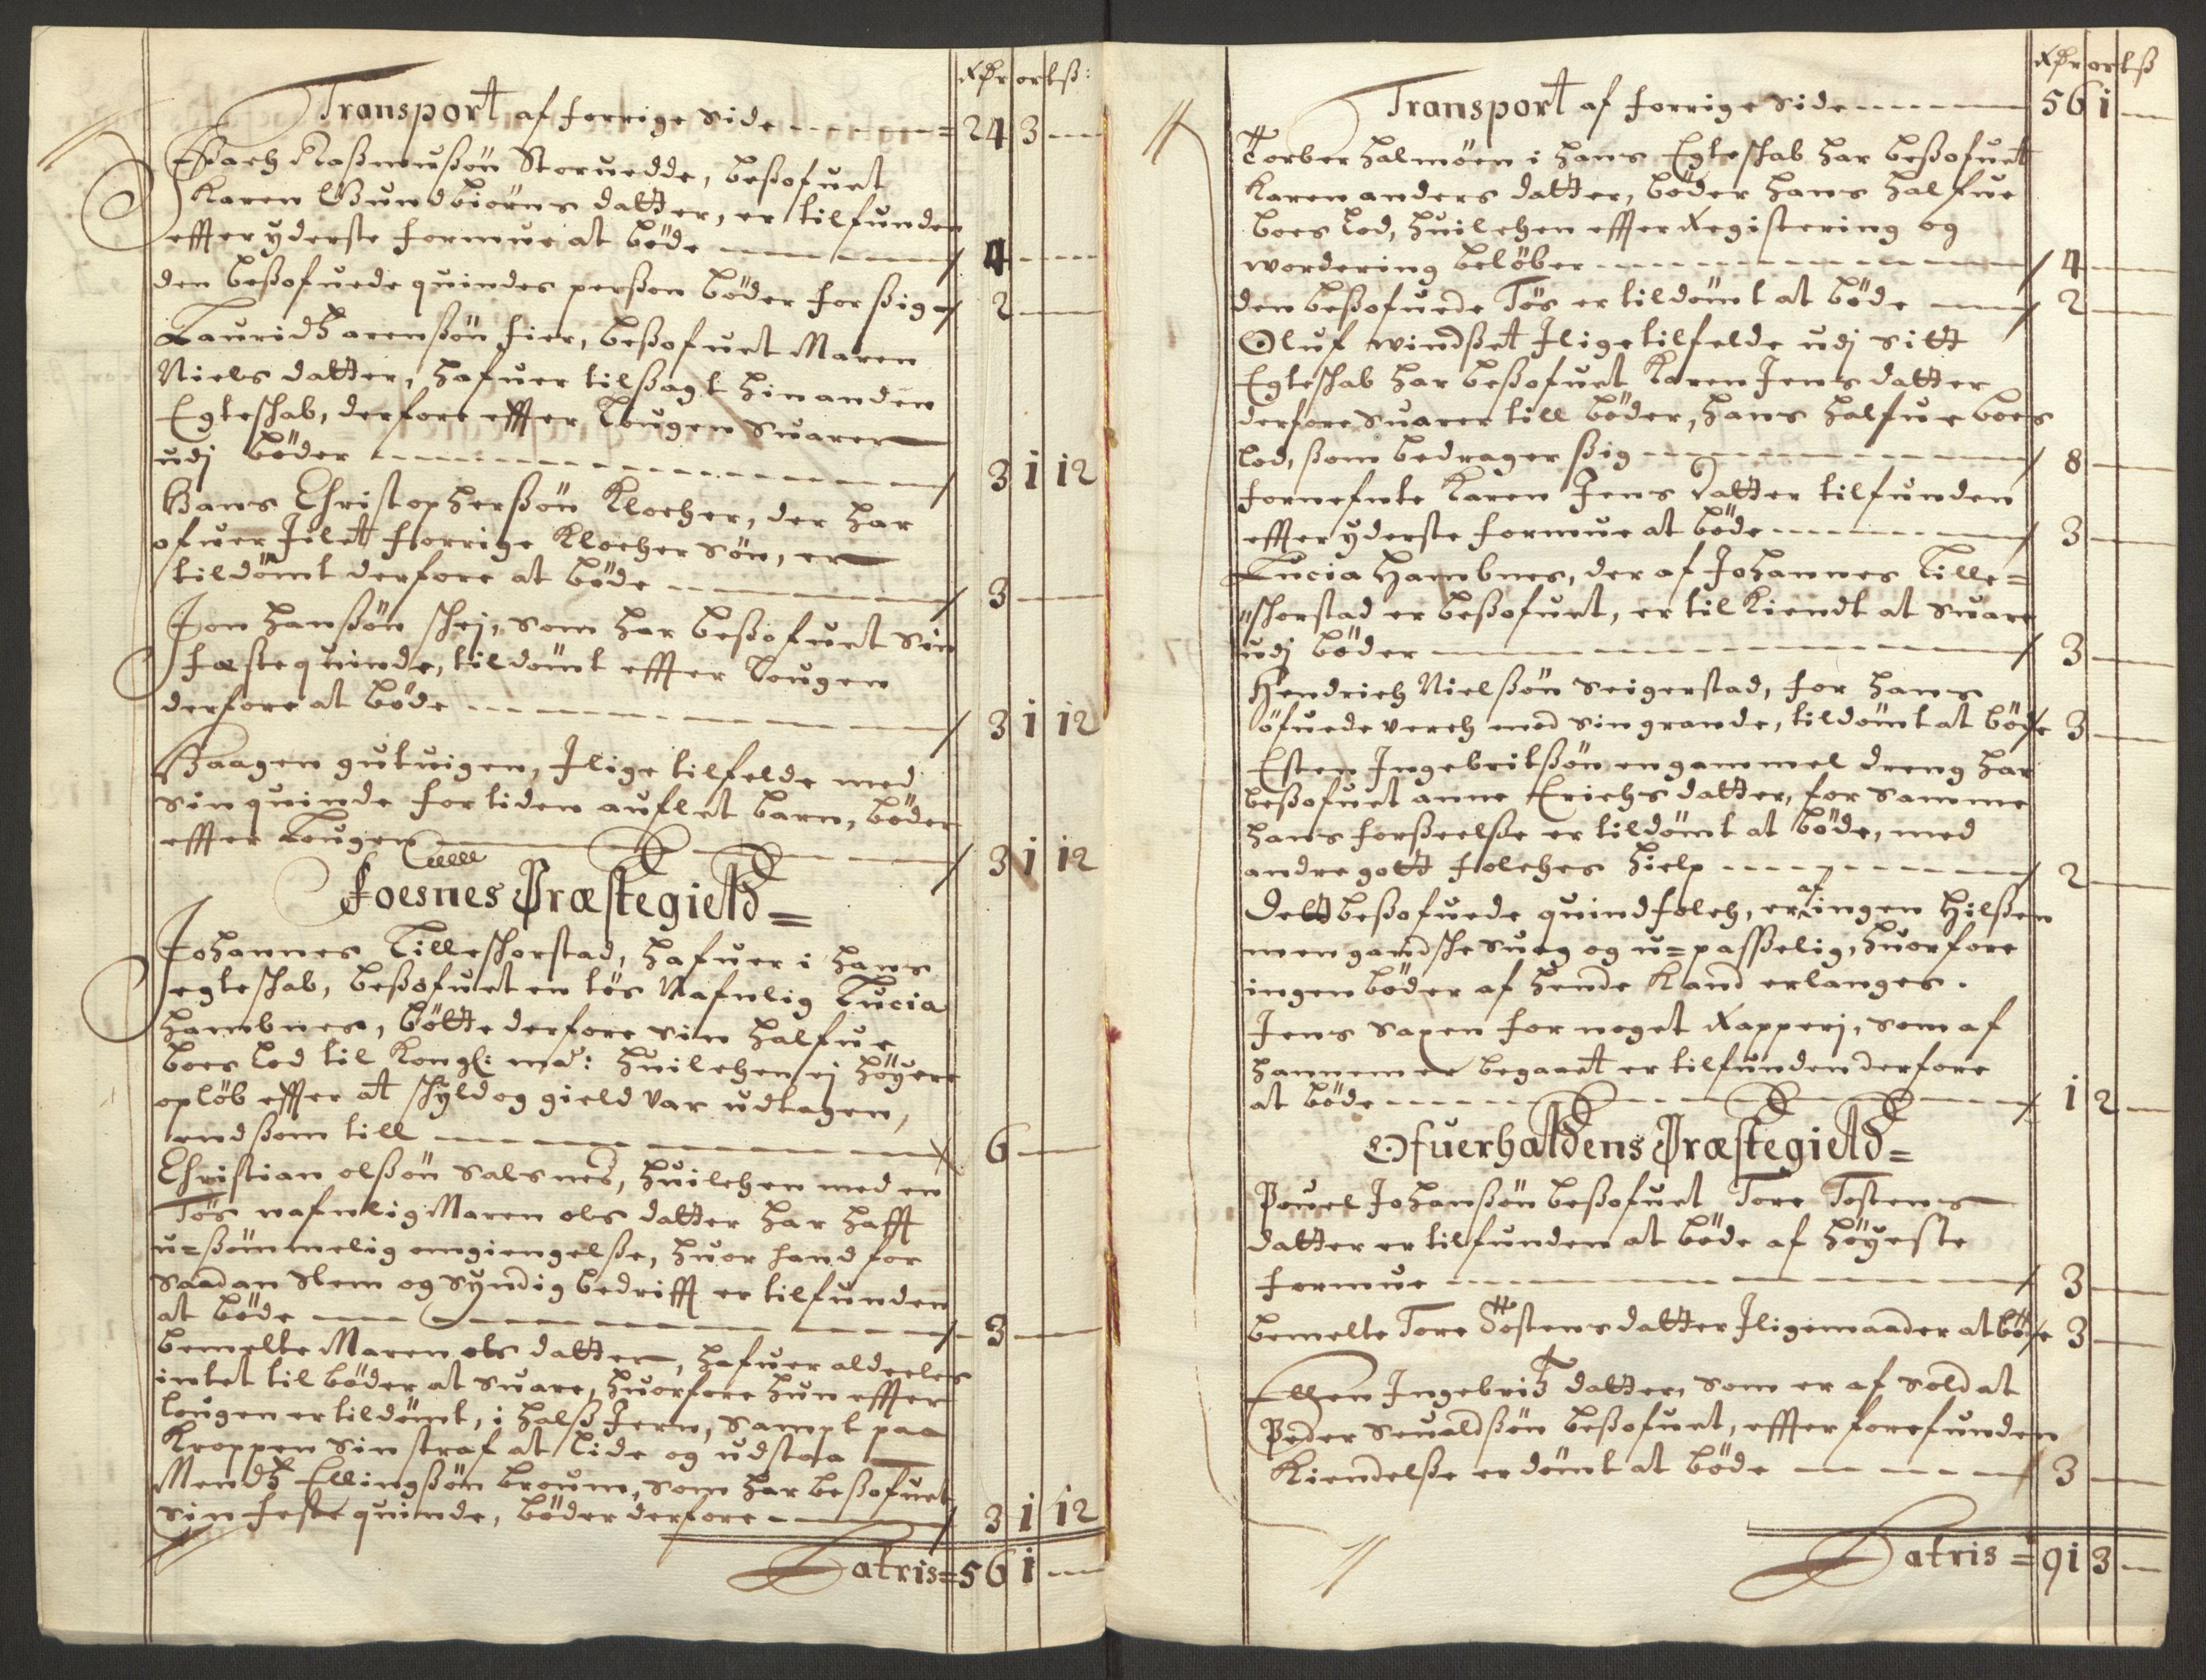 Rdr ort ß:
Transport af forrige side ------- = 24 3 -
Isach Rasmusßøn Storuedde, beßofuet
Karen Gundbiørns datter, er tilfunden
effter yderste formue at bøde ---- / 4 -
den beßofuede quindes perßon bøder for ßig / 2 -
Lauridz Arenßøn fier, beßofuet Maren
Niels datter, hafuer tilßagt hinanden
Egteschab, derfore effter Lougen suarer
udj bøder ---- / 3 1 12
Hans Christopherßøn Klocher, der har
ofuer Jilet forrige Klochersøn, er
tildømt derfore at bøde ---- / 3 -
Jon Hanßøn schej, som har beßofuet sin
fæstequinde, tildømt effter Lougen
derfore at bøde ---- / 3 1 12
Haagen gutuigen, Jlige tilfelde med
sin quinde for tiden auflet barn, bøder
effter Lougen ---- / 3 1 12
Foesnes Præstegield =
Johannes Lilleschorstad, hafuer i hans
egteschab, beßofuet en tøs Nafnlig Lucia
Hambnes, bøtte derfore sin halfue
boes lod til Kongl: may: huilchen ej høyere
opløb effter at schyld og gield var udtagen,
end ßom till ---- 6 -
Christian olßøn Salsnes, huilchen med en
Tøs nafnlig Maren ols datter har hafft
u=ßømmelig omgiengelße, huor hand for
saadan slem og syndig bedrifft er tilfunden
at bøde ---- / 3 -
bemelte Maren ols datter, hafuer aldeeles
intet til bøder at suare, huorfore hun effter
lougen er tildømt, i halß Jern, sampt paa
Kroppen sin straf at lide og udstaa
Mendz Ellingßøn broum, som har beßofuet
sin festequinde, bøder derfore ---- / 3 1 12
Latris = 56 1 -
Rdr ort ß
Transport af forrige side ------- 56 1 -
Torber halmøen i hans Egteschab har beßofuet
Karen anders datter, bøder hans halfue
boes lod, huilchen effter Registering og
wordering beløber ---- / 4 -
den beßofuede Tøs er tildømt at bøde ---- / 2 -
Oluf windßet Jlige tilfelde udj sitt
Egteschab har beßofuet Karen Jens datter
derfore suarer till bøder, hans halfue boes
lod, ßom bedrager ßig ---- / 8 -
fornefnte Karen Jens datter tilfunden
effter yderste formue at bøde ---- / 3 -
Lucia Hambnes, der af Johannes Lille=
schorstad er beßofuet, er til kiendt at suare
udj bøder ---- / 3 -
Hendrich Nielßøn seigerstad, for hans
øfuede verch med sin grande, tildømt at bøde 3 -
Esten Ingebritßøn en gammel dreng har
beßofuet anne Erichs datter, for samme
hans forßeelße er tildømt at bøde, med
andre gott folches hielp ---- / 2 -
Dett beßofuede quindfolch, er af ingen hilßen
men gandsche suag og u=paßßelig, huorfore
ingen bøder af hende kand erlanges.
Jens Sapen for noget Rapperj, som af
hannem er begaaet er tilfunden derfore
at bøde ---- / 1 2 -
Ofuerhaldens Præstegield =
Pouel Johanßøn beßofuet Tore Tostens
datter er tilfunden at bøde af høyeste
formue ---- / 3 -
bemelte Tore Tostens datter Jligemaader at bøde 3 -
Ellen Ingebridz datter, som er af soldat
Peder Seualdßøn beßofuet, effter forefunden
Kiendelße er dømt at bøde ---- / 3 -
Latris = 91 3 -